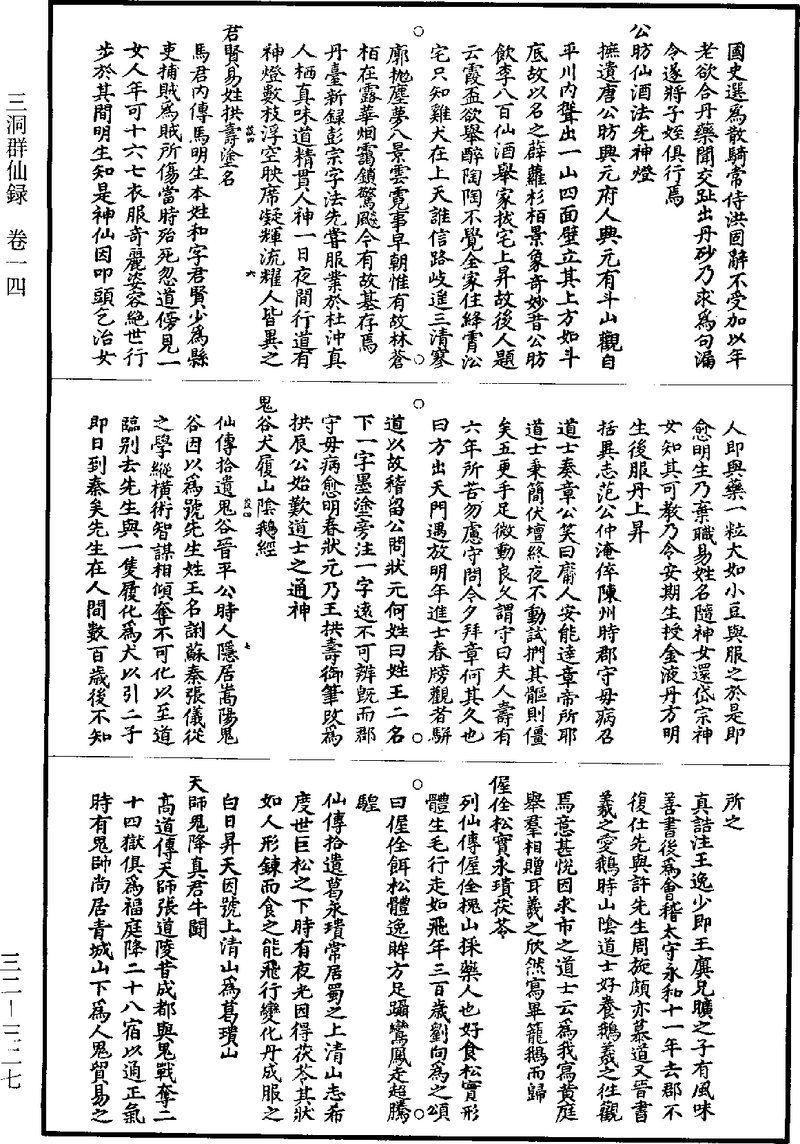 國史選為散騎常侍洪固辭不受加以年
老欲合丹藥聞交趾出丹砂乃求為句漏
令遂將子姪俱行焉
公昉仙酒法先神燈
撫遺唐公昉興元府人興元有斗山觀自
平川內聳出一山四面壁立其上方如斗
底故以名之薜蘿杉栢景象奇妙昔公昉
飲李八百仙酒舉家拔宅上昇故後人題
云霞盃欲舉醉陶陶不覺全家住絳霄㳂
宅只知雞犬在上天誰信路歧遙三清寥
廓抛塵夢八景雲霓事早朝惟有故林蒼
栢在露華烟靄鎖驚飈今有故基存焉
丹臺新錄彭宗字法先嘗服業於杜沖真
人栖真味道精貫人神一日夜間行道有
神燈數枝浮空映席凝輝流耀人皆異之
君賢易姓拱壽塗名
馬君內傳馬明生本姓和字君賢少為縣
吏捕賊為賊所傷當時殆死忽道傍見一
女人年可十六七衣服奇麗姿容絕世行
步於其間明生知是神仙因叩頭乞治女
人即與藥一粒大如小豆與服之於是即
愈明生乃棄職易姓名隨神女還岱宗神
女知其可教乃令安期生授金液丹方明
生後服丹上昇
括異志范公仲淹倅陳州時郡守毋病召
道士奏章公笑曰庸人安能達章帝所耶
道士秉簡伏壇終夜不動試捫其軀則僵
矣五更手足微動良久謂守曰夫人壽有
六年所苦勿慮守問今夕拜章何其久也
曰方出天門遇放明年進士春牓觀者駢
道以故稽留公問狀元何姓曰姓王二名
下一字墨塗旁注一字遠不可辨既而郡
守毋病愈明春狀元乃王拱壽御筆改為
拱辰公始歎道士之通神
鬼谷犬履山陰鵝經
仙傳拾遺鬼谷晉平公時人隱居嵩陽鬼
谷因以為號先生姓王名詡蘇秦張儀從
之學縱橫術智謀相傾奪不可化以至道
臨別去先生與一隻履化為犬以引二子
即日到秦矣先生在人間數百歲後不知
所之
真誥注王逸少即王廙兄曠之子有風味
善書後為會稽太守永和十一年去郡不
復仕先與許先生周旋頗亦慕道又晉書
羲之愛鵝時山陰道士好養鵝羲之往觀
焉意甚悅因求市之道士云為我寫黃庭
舉羣相贈耳羲之欣然寫畢籠鵝而歸
偓佺松實永璝茯苓
列仙傳偓佺槐山採藥人也好食松實形
體生毛行走如飛年三百歲劉向為之頌
曰偓佺餌松體逸眸方足躡鸞鳳走超騰
騜
仙傳拾遺葛永璝常居蜀之上清山志希
度世巨松之下時有夜光因得茯苓其狀
如人形鍊而食之能飛行變化丹成服之
白日昇天因號上清山為葛璝山
天師鬼降真君牛鬪
高道傳天師張道陵昔成都與鬼戰奪二
十四獄俱為福庭降二十八宿以通正氣
時有鬼帥尚居青城山下為人鬼貿易之
三洞群仙録　卷一四
三二—三二七